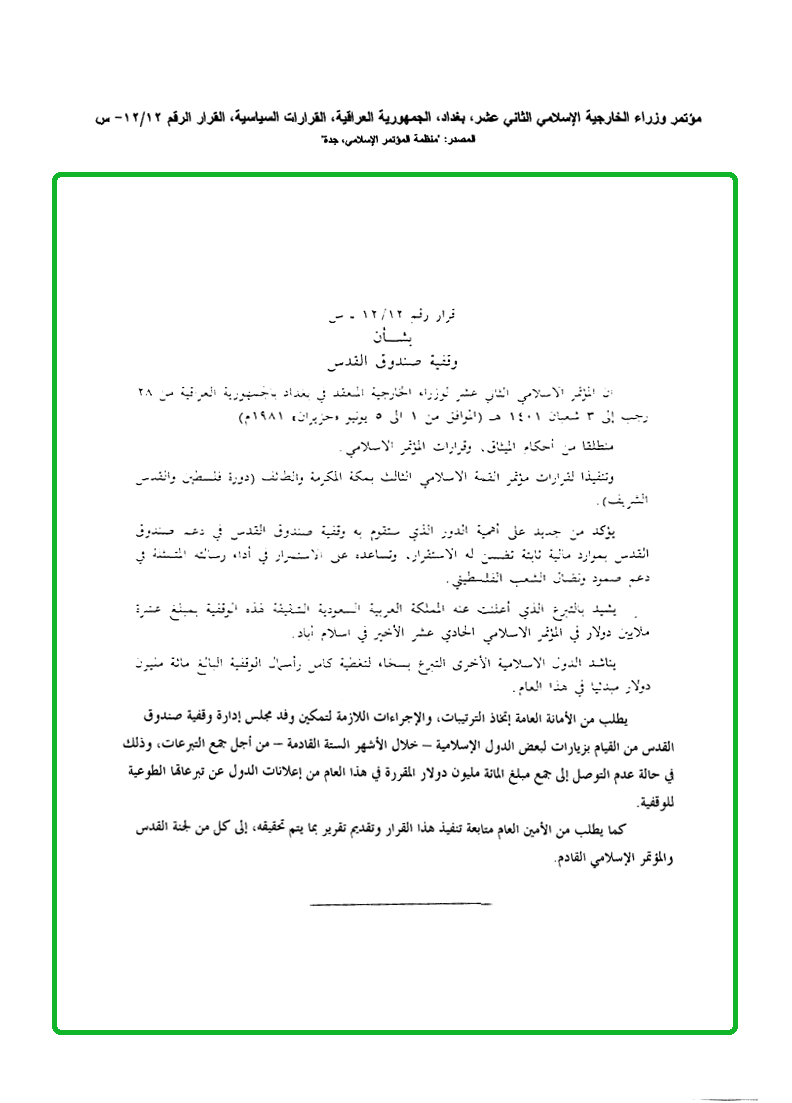 مؤتمر وزراء الخارجية الإسلامي الثاني عشر، بغداد، الجمهورية العراقية، القرارات السياسية، القرار الرقم ١٢/١٢- س
المصدر: "منظمة المؤتمر الإسلامي، جدة"
قرار رقم ١٢/١٢ ـ س
بشـــأن
وقفية صندوق القدس
ان المؤتمر الاسلامي الثاني عشر لوزراء الخارجية المنعقد في بغداد بالجمهورية العراقية من ٢٨
رجب إلى ٣ شعبان ١٤٠١ هـ (الموافق من ١ الى ٥ يونيو «حزيران» ١٩٨١م)
منطلقا من أحكام الميثاق، وقرارات المؤتمر الاسلامي.
وتنفيذا لقرارات مؤتمر القمة الاسلامي الثالث بمكة المكرمة والطائف (دورة فلسطين والقدس
الشريف).
يؤكد من جديد على أهمية الدور الذي ستقوم به وقفية صندوق القدس في دعم صندوق
القدس بموارد مالية ثابتة تضمن له الاستقرار، وتساعده على الاستمرار في أداء رسالته المتمثلة في
دعم صمود ونضال الشعب الفلسطيني.
يشيد بالتبرع الذي أعلنت عنه المملكة العربية السعودية الشقيقة لهذه الوقفية بمبلغ عشرة
ملايين دولار في المؤتمر الاسلامي الحادي عشر الأخير في اسلام أباد.
يناشد الدول الاسلامية الأخرى التبرع بسخاء لتغطية كامل رأسمال الوقفية البالغ مائة مليون
دولار مبدئيا في هذا العام.
يطلب من الأمانة العامة إتخاذ الترتيبات، والإجراءات اللازمة لتمكين وفد مجلس إدارة وقفية صندوق
القدس من القيام بزيارات لبعض الدول الإسلامية – خلال الأشهر الستة القادمة – من أجل جمع التبرعات، وذلك
في حالة عدم التوصل إلى جمع مبلغ المائة مليون دولار المقررة في هذا العام من إعلانات الدول عن تبرعاتها الطوعية
للوقفية.
كما يطلب من الأمين العام متابعة تنفيذ هذا القرار وتقديم تقرير بما يتم تحقيقه، إلى كل من لجنة القدس
والمؤتمر الإسلامي القادم.